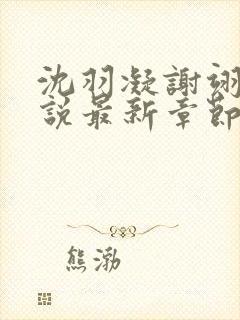 沈羽凝謝翊
說最新章節
熊渤